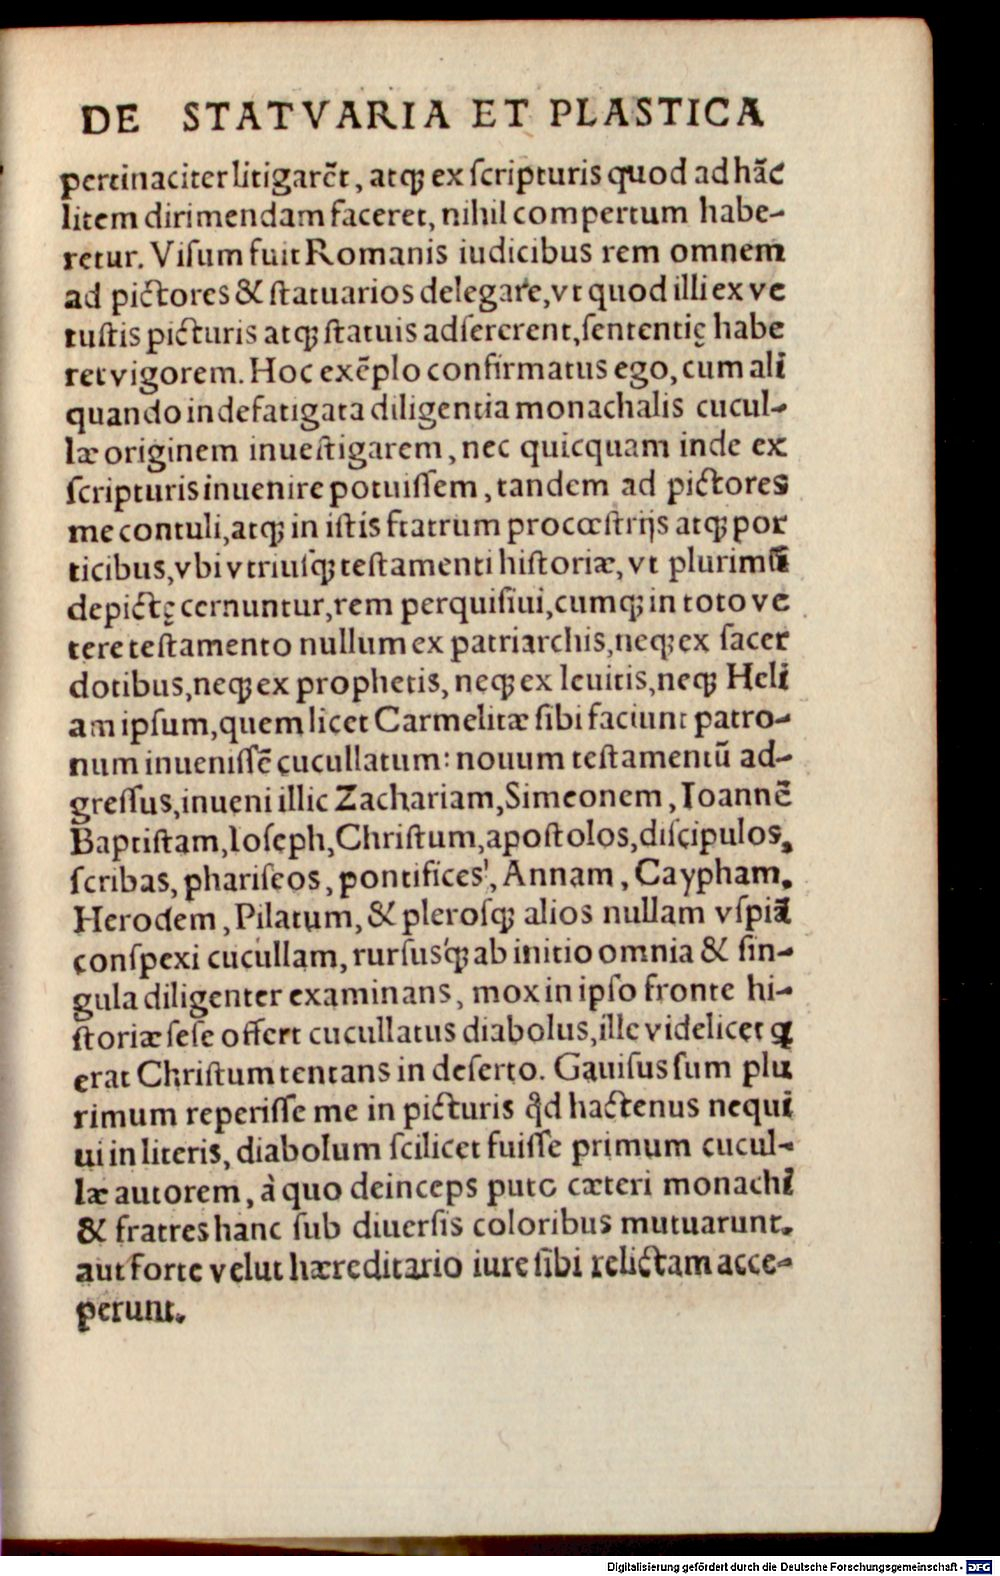 DE STATVARIA ET PLASTICA
pertinaciter litigarēt, atq; ex ſcripturis quod ad hāc
litem dirimendam faceret, nihil compertum habe-
retur. Viſum fuit Romanis iudicibus rem omnem
ad pictores & ſtatuarios delegare, vt quod illi ex ve
tuſtis picturis atq; ſtatuis adſererent, ſententię habe
ret vigorem. Hoc exēplo confirmatus ego, cum ali
quando indefatigata diligentia monachalis cucul-
læ originem inueſtigarem, nec quicquam inde ex
ſcripturis inuenire potuiſſem, tandem ad pictores
me contuli, atq; in iſtis fratrum procœſtrijs atq; por
ticibus, vbi vtriuſq; teſtamenti hiſtoriæ, vt plurimū
depictę cernuntur, rem perquiſiui, cumq; in toto ve
tere teſtamento nullum ex patriarchis, neq; ex ſacer
dotibus, neq; ex prophetis, neq; ex leuitis, neq; Heli
am ipſum, quem licet Carmelitæ ſibi faciunt patro-
num inueniſſē cucullatum: nouum teſtamentū ad-
greſſus, inueni illic Zachariam, Simeonem, Ioannē
Baptiſtam, Ioſeph, Chriſtum, apoſtolos, diſcipulos,
ſcribas, phariſeos, pontifices', Annam, Caypham,
Herodem, Pilatum, & pleroſq; alios nullam vſpiā
conſpexi cucullam, rurſusq́; ab initio omnia & ſin-
gula diligenter examinans, mox in ipſo fronte hi-
ſtoriæ ſeſe offert cucullatus diabolus, ille videlicet q
erat Chriſtum tentans in deſerto. Gauiſus ſum plu
rimum reperiſſe me in picturis qd hactenus nequi
ui in literis, diabolum ſcilicet fuiſſe primum cucul-
læ autorem, à quo deinceps puto cæteri monachi
& fratres hanc ſub diuerſis coloribus mutuarunt,
aut forte velut hæreditario iure ſibi relictam acce-
perunt.
Digitalisierung gefördert durch die Deutsche Forschungsgemeinschaft - DFG